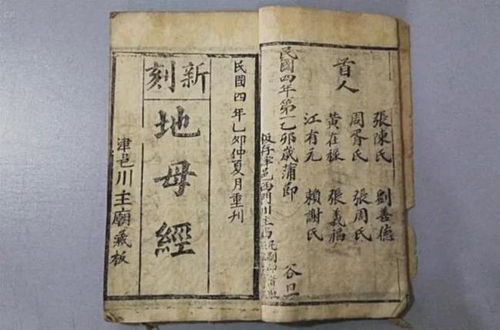 首人
張陳氏 劉善德
周胥氏 張周氏
黃在極 張義福
江有元 賴謝氏
民國四年第一乙卯歲蒲節
邑西門川主
谷旦
民國四年乙卯仲夏月重刊
新刻
地母經
津邑川主廟藏板